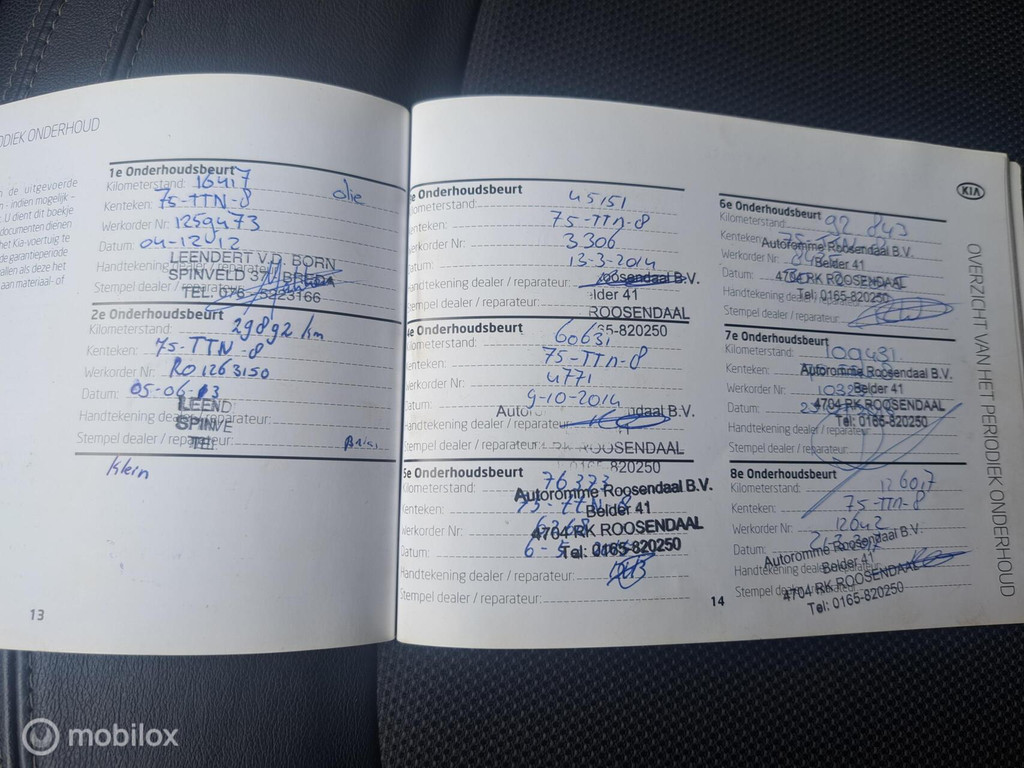 ODIEK ONDERHOUD
n de uitgevoerde
n - indien mogelijk -
U dient dit boekje
documenten dienen
het Kia-voertuig te
garantieperiode
allen als deze het
aan materiaal- of
1e Onderhoudsbeurt
Kilometerstand: 16417 olie
Kenteken: 75-TTN-8
Werkorder Nr: 1259473
Datum: 04-12-12
LEENDERT V.D. BORN
Handtekening dealer / reparateur:
SPINVELD 37 BREDA
Stempel dealer / reparateur:
TEL. 076 - 5223166
2e Onderhoudsbeurt
Kilometerstand: 29892 km
Kenteken: 75-TTN-8
Werkorder Nr: RO1263150
Datum: 05-06-13
LEEND
Handtekening dealer / reparateur:
SPINVE
Stempel dealer / reparateur:
TEL
Klein
13
e Onderhoudsbeurt
ilometerstand: 45151
enteken: 75-TTN-8
erkorder Nr: 3306
atum: 13-3-2014
andtekening dealer / reparateur: Roosendaal B.V.
lder 41
tempel dealer / reparateur: ROOSENDAAL
65-820250
4e Onderhoudsbeurt
ilometerstand: 60631
enteken: 75-TTN-8
Werkorder Nr: 4771
atum: 9-10-2014
Autor daal B.V.
andtekening dealer / reparateur:
Stempel dealer / reparateur: RK ROOSENDAAL
0165-820250
5e Onderhoudsbeurt
Kilometerstand: 76373
Autoromme Roosendaal B.V.
Kenteken: 75-TTN-8
Belder 41
Werkorder Nr: 6268
4704 RK ROOSENDAAL
Datum: 6-5-
Tel: 0165-820250
Handtekening dealer / reparateur:
Stempel dealer / reparateur:
14
KIA
6e Onderhoudsbeurt
Kilometerstand: 92 843
Kenteken: 75-
Autoromme Roosendaal B.V.
Werkorder Nr:
Belder 41
Datum:
4704 RK ROOSENDAAL
Handtekening dealer / reparateur:
Tel: 0165-820250
Stempel dealer / reparateur:
7e Onderhoudsbeurt
Kilometerstand: 109431
Kenteken:
Autoromme Roosendaal B.V.
Werkorder Nr:
Belder 41
Datum:
4704 RK ROOSENDAAL
Tel: 0165-820250
Handtekening dealer / reparateur:
Stempel dealer / reparateur:
8e Onderhoudsbeurt
Kilometerstand: 12607
Kenteken: 75-TTN-8
Werkorder Nr: 12642
Datum:
Autoromme Roosendaal B.V.
Handtekening dealer / reparateur:
Belder 41
Stempel dealer / reparateur:
4704 RK ROOSENDAAL
Tel: 0165-820250
OVERZICHT VAN HET PERIODIEK ONDERHOUD
mobilox